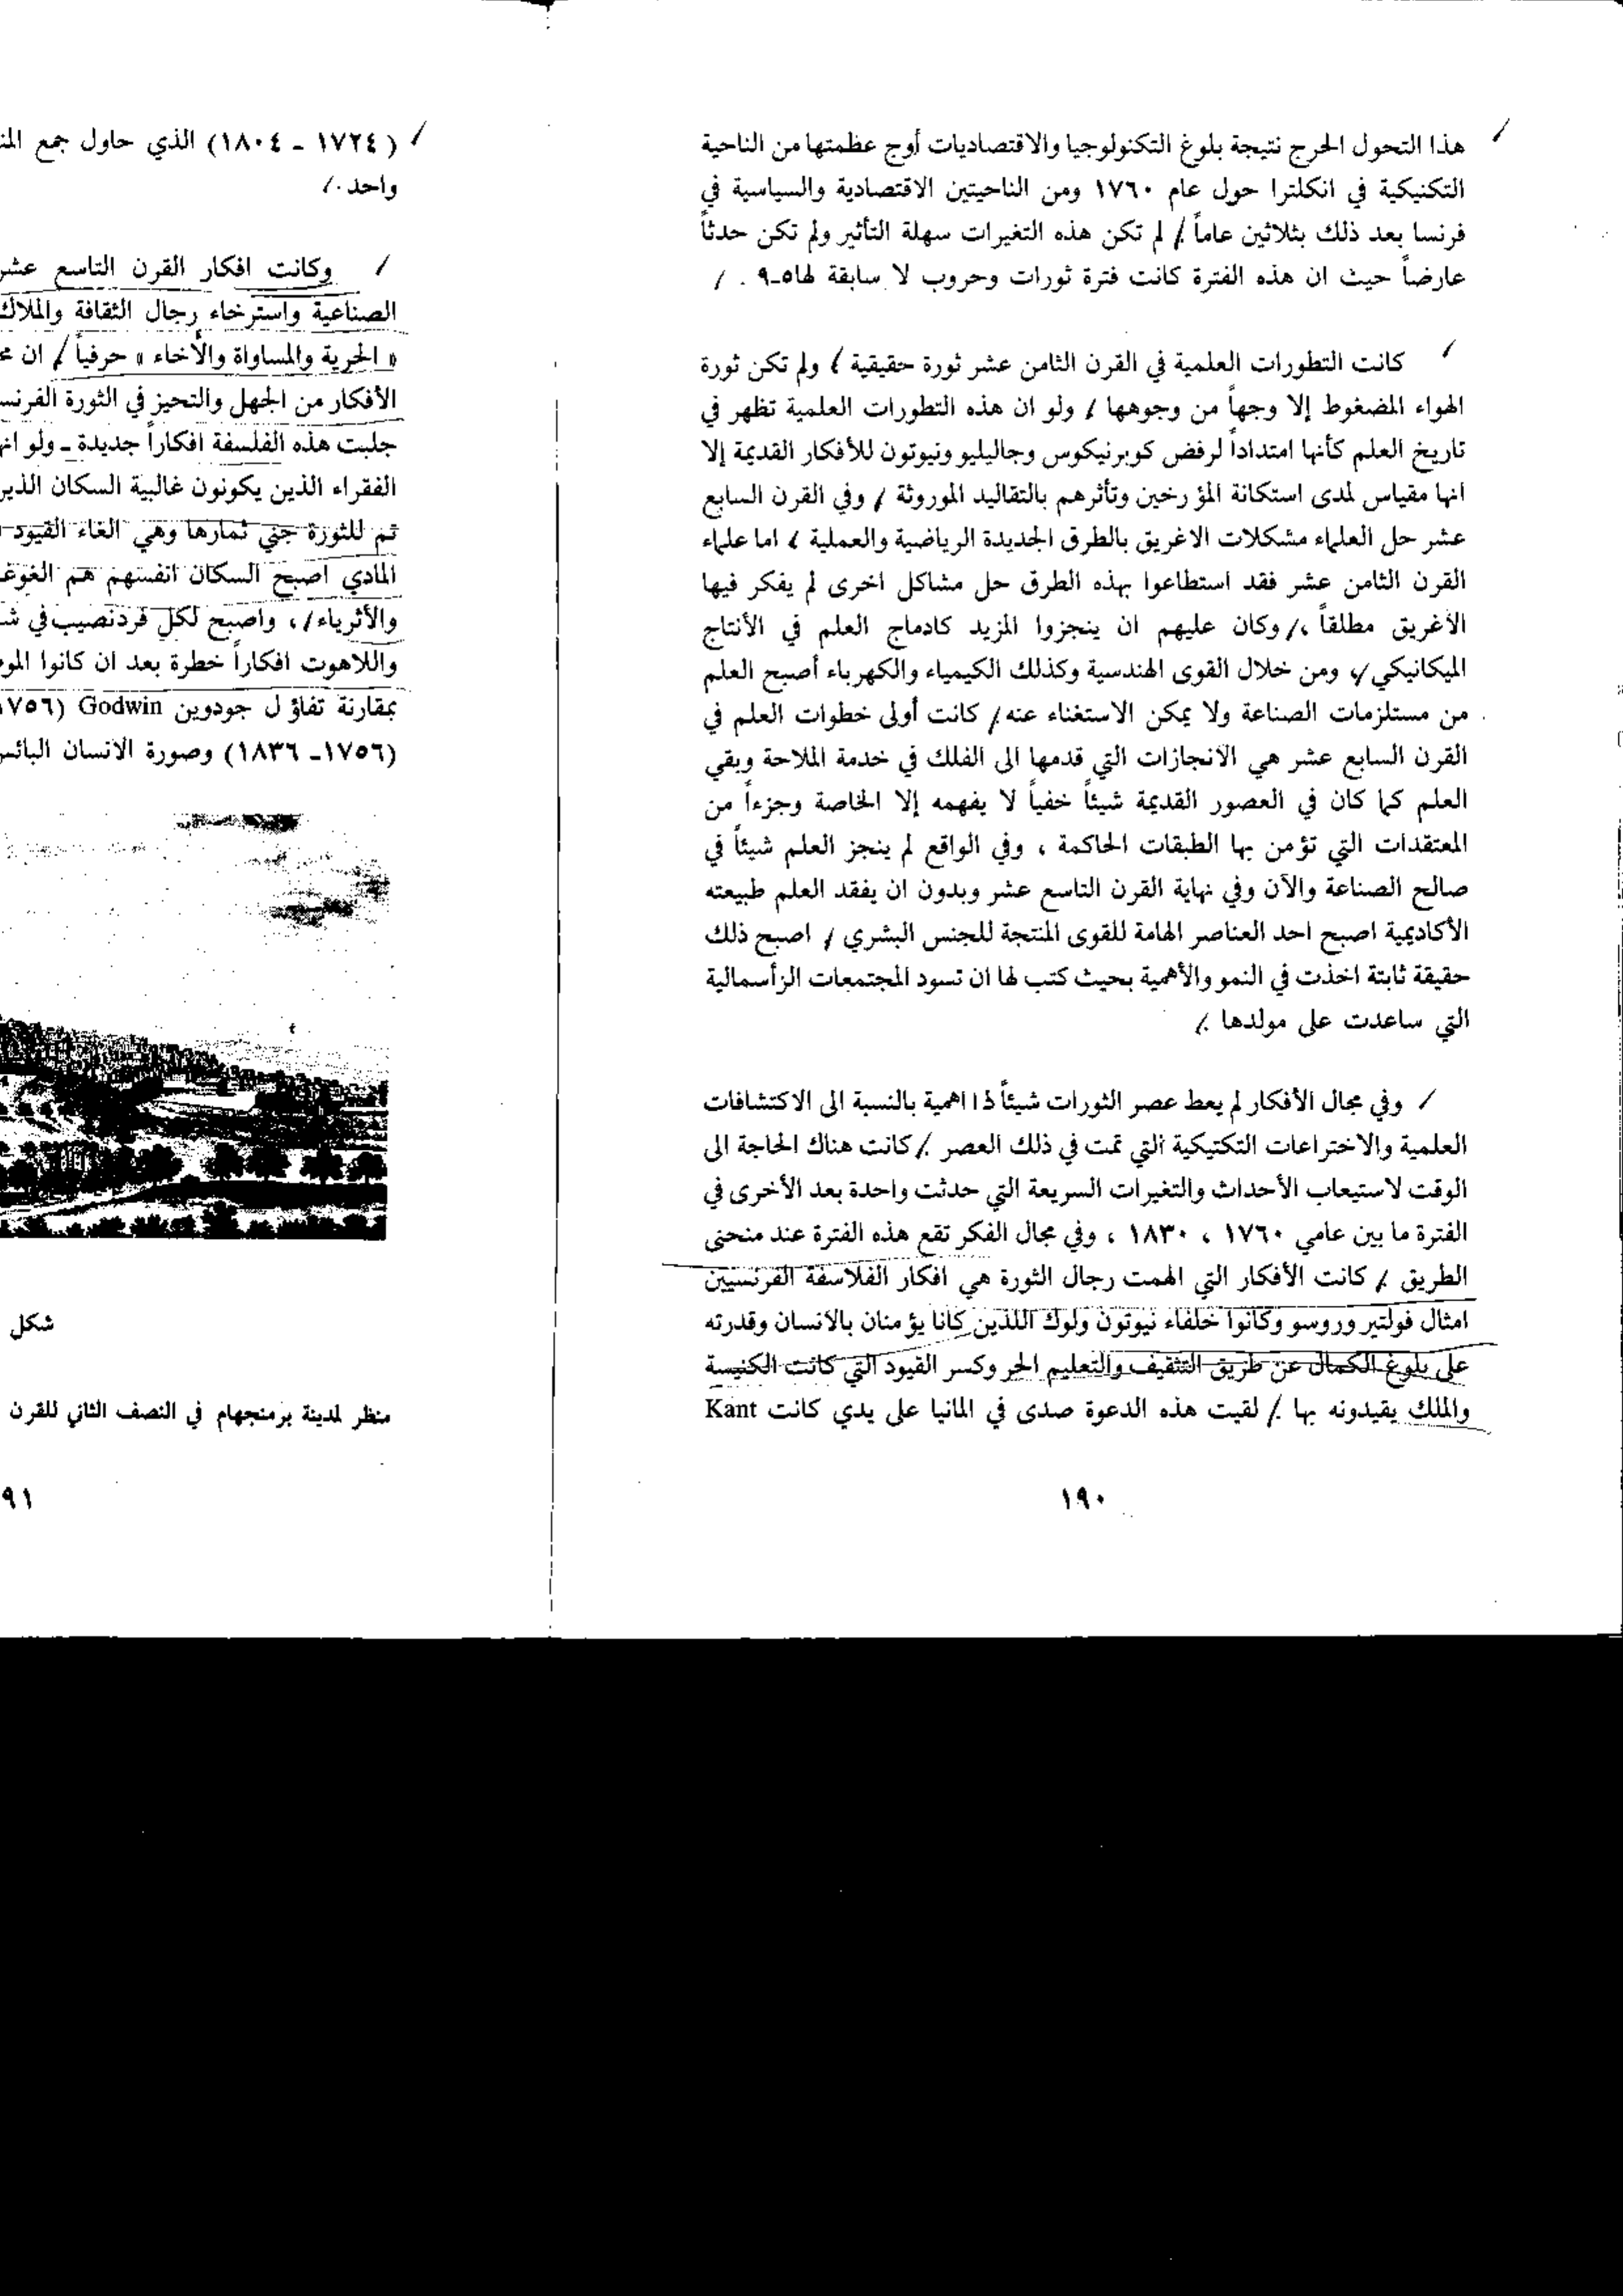 هذا التحول الحرج نتيجة بلوغ التكنولوجيا والاقتصاديات أوج عظمتها من الناحية
التكنيكية في انكلترا حول عام ١٧٦٠ ومن الناحيتين الاقتصادية والسياسية في
فرنسا بعد ذلك بثلاثين عاماً . لم تكن هذه التغيرات سهلة التأثير ولم تكن حدثاً
عارضاً حيث ان هذه الفترة كانت فترة ثورات وحروب لا سابقة لها٥-٩ .
كانت التطورات العلمية في القرن الثامن عشر ثورة حقيقية ، ولم تكن ثورة
الهواء المضغوط إلا وجهاً من وجوهها . ولو ان هذه التطورات العلمية تظهر في
تاريخ العلم كأنها امتداداً لرفض كوبرنيكوس وجاليليو ونيوتون للأفكار القديمة إلا
انها مقياس لمدى استكانة المؤرخين وتأثرهم بالتقاليد الموروثة . وفي القرن السابع
عشر حل العلماء مشكلات الاغريق بالطرق الجديدة الرياضية والعملية ، اما علماء
القرن الثامن عشر فقد استطاعوا بهذه الطرق حل مشاكل اخرى لم يفكر فيها
الأغريق مطلقاً ، وكان عليهم ان ينجزوا المزيد كادماج العلم في الأنتاج
الميكانيكي ، ومن خلال القوى الهندسية وكذلك الكيمياء والكهرباء أصبح العلم
من مستلزمات الصناعة ولا يمكن الاستغناء عنه . كانت أولى خطوات العلم في
القرن السابع عشر هي الانجازات التي قدمها الى الفلك في خدمة الملاحة وبقي
العلم كما كان في العصور القديمة شيئاً خفياً لا يفهمه إلا الخاصة وجزءاً من
المعتقدات التي تؤمن بها الطبقات الحاكمة ، وفي الواقع لم ينجز العلم شيئاً في
صالح الصناعة والآن وفي نهاية القرن التاسع عشر وبدون ان يفقد العلم طبيعته
الأكاديمية اصبح احد العناصر الهامة للقوى المنتجة للجنس البشري . اصبح ذلك
حقيقة ثابتة اخذت في النمو والأهمية بحيث كتب لها ان تسود المجتمعات الرأسمالية
التي ساعدت على مولدها .
وفي مجال الأفكار لم يعط عصر الثورات شيئاً ذا اهمية بالنسبة الى الاكتشافات
العلمية والاختراعات التكتيكية التي تمت في ذلك العصر . كانت هناك الحاجة الى
الوقت لاستيعاب الأحداث والتغيرات السريعة التي حدثت واحدة بعد الأخرى في
الفترة ما بين عامي ١٧٦٠ ، ١٨٣٠ ، وفي مجال الفكر تقع هذه الفترة عند منحنى
الطريق . كانت الأفكار التي الهمت رجال الثورة هي افكار الفلاسفة الفرنسيين
امثال فولتير وروسو وكانوا خلفاء نيوتون ولوك اللذين كانا يؤمنان بالانسان وقدرته
على بلوغ الكمال عن طريق التثقيف والتعليم الحر وكسر القيود التي كانت الكنيسة
والملك يقيدونه بها . لقيت هذه الدعوة صدى في المانيا على يدي كانت Kant
١٩٠
(١٧٢٤ - ١٨٠٤) الذي حاول جمع
واحد .
وكانت افكار القرن التاسع عشر
الصناعية واسترخاء رجال الثقافة والملاك
« الحرية والمساواة والأخاء » حرفياً . ان
الأفكار من الجهل والتحيز في الثورة
جلبت هذه الفلسفة افكاراً جديدة - ولو
الفقراء الذين يكونون غالبية السكان
تم للثورة جني ثمارها وهي الغاء القيود
المادي اصبح السكان انفسهم هم
والأثرياء ، واصبح لكل فرد نصيب في
واللاهوت افكاراً خطرة بعد ان كانوا
بمقارنة تفاؤل جودوين Godwin (١٧٥٦
(١٧٥٦- ١٨٣٦) وصورة الانسان
شكل
منظر لمدينة برمنجهام في النصف الثاني للقرن
٩١